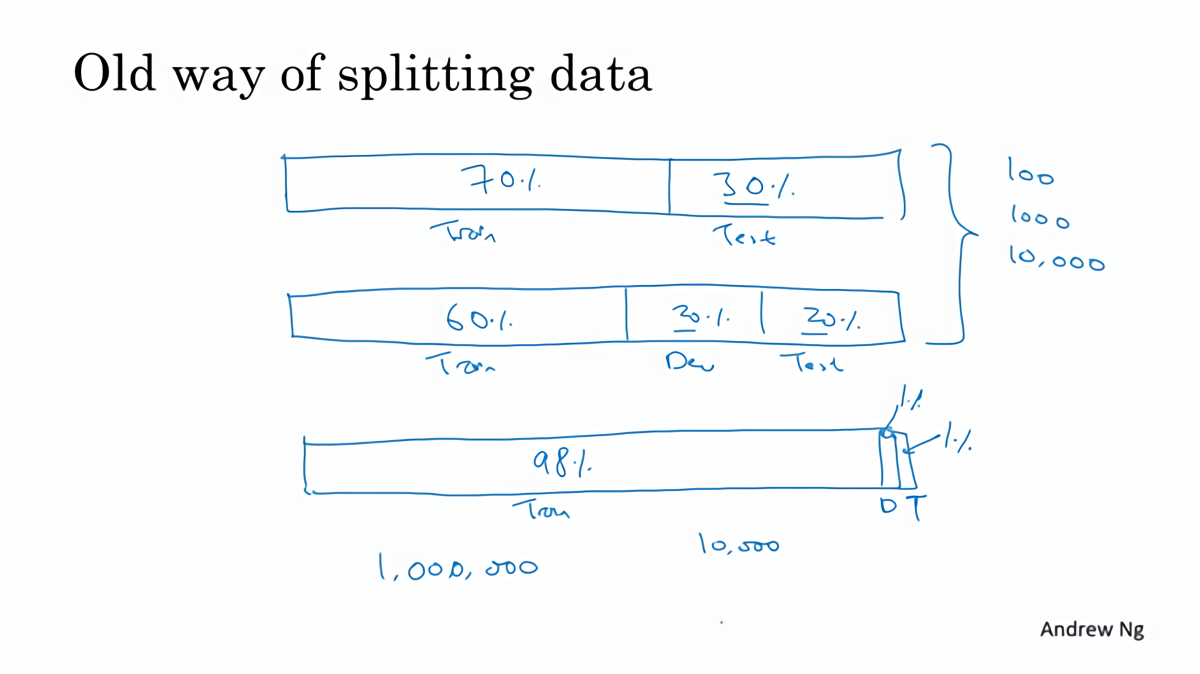 Old way of splitting data
70% 30%
Train Test
100
1000
10,000
60% 20% 20%
Train Dev Test
1%
1%
98%
Train D T
10,000
1,000,000
Andrew Ng